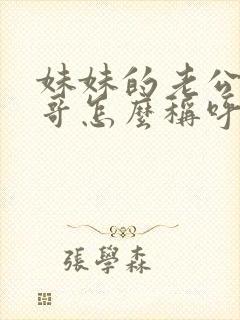 妹妹的老公
哥怎麼稱呼
張學森